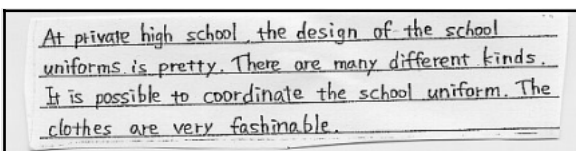 At private high school, the design of the school
uniforms is pretty. There are many different kinds.
It is possible to coordinate the school uniform. The
clothes are very fashinable.